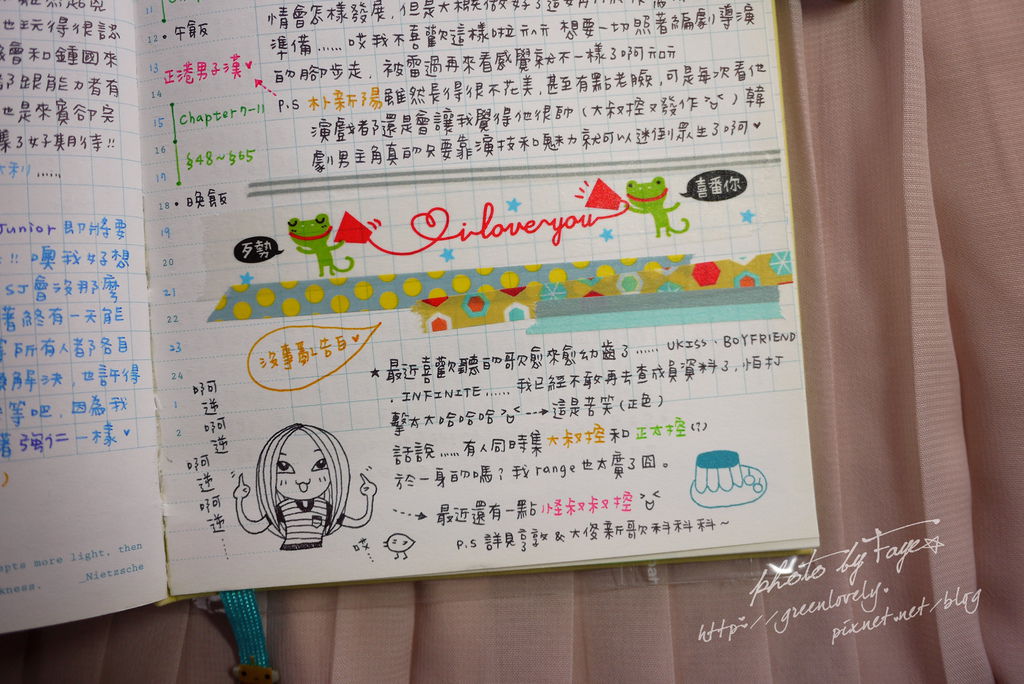 也玩得很認
會和鍾國來
了跟能力者有
也是來賓卻完
集了好期待!!
大利......
Junior 即將要
!! 噢我好想
SJ 會沒那麼
著終有一天能
等所有人都各自
解決,也許得
等吧,因為我
著 強仁 一樣♥
epts more light, then
kness. _Nietzsche
11
12 • 午飯
13 正港男子漢♥
14
15 Chapter 7-11
16 §48~§65
17
18 • 晚飯
19
20
21
22
23
24
1
2
準備......哎我不喜歡這樣啦ㄦㄦ 想要一切照著編劇導演
的腳步走,被雷過再來看感覺就不一樣了啊ㄦㄦ
P.S 朴新陽雖然長得很不花美,甚至有點老臉,可是每次看他
演戲都還是會讓我覺得他很帥(大叔控又發作)韓
劇男主角真的只要靠演技和魅力就可以迷倒眾生了啊♥
歹勢
i love you
喜番你
沒事亂告白♥
★最近喜歡聽的歌愈來愈幼齒了...... UKISS、BOYFRIEND
、INFINITE...... 我已經不敢再去查成員資料了,怕打
擊太大哈哈哈 → 這是苦笑(正色)
話說......有人同時集大叔控和正太控(?)
於一身的嗎?我range也太廣了囧。
→ 最近還有一點怪叔叔控
P.S 詳見享敦&大俊新歌科科科~
啊
逆
啊
逆
啊
逆
啊
逆
......
哎...
photo by Faye☆
http://greenlovely.
pixnet.net/blog